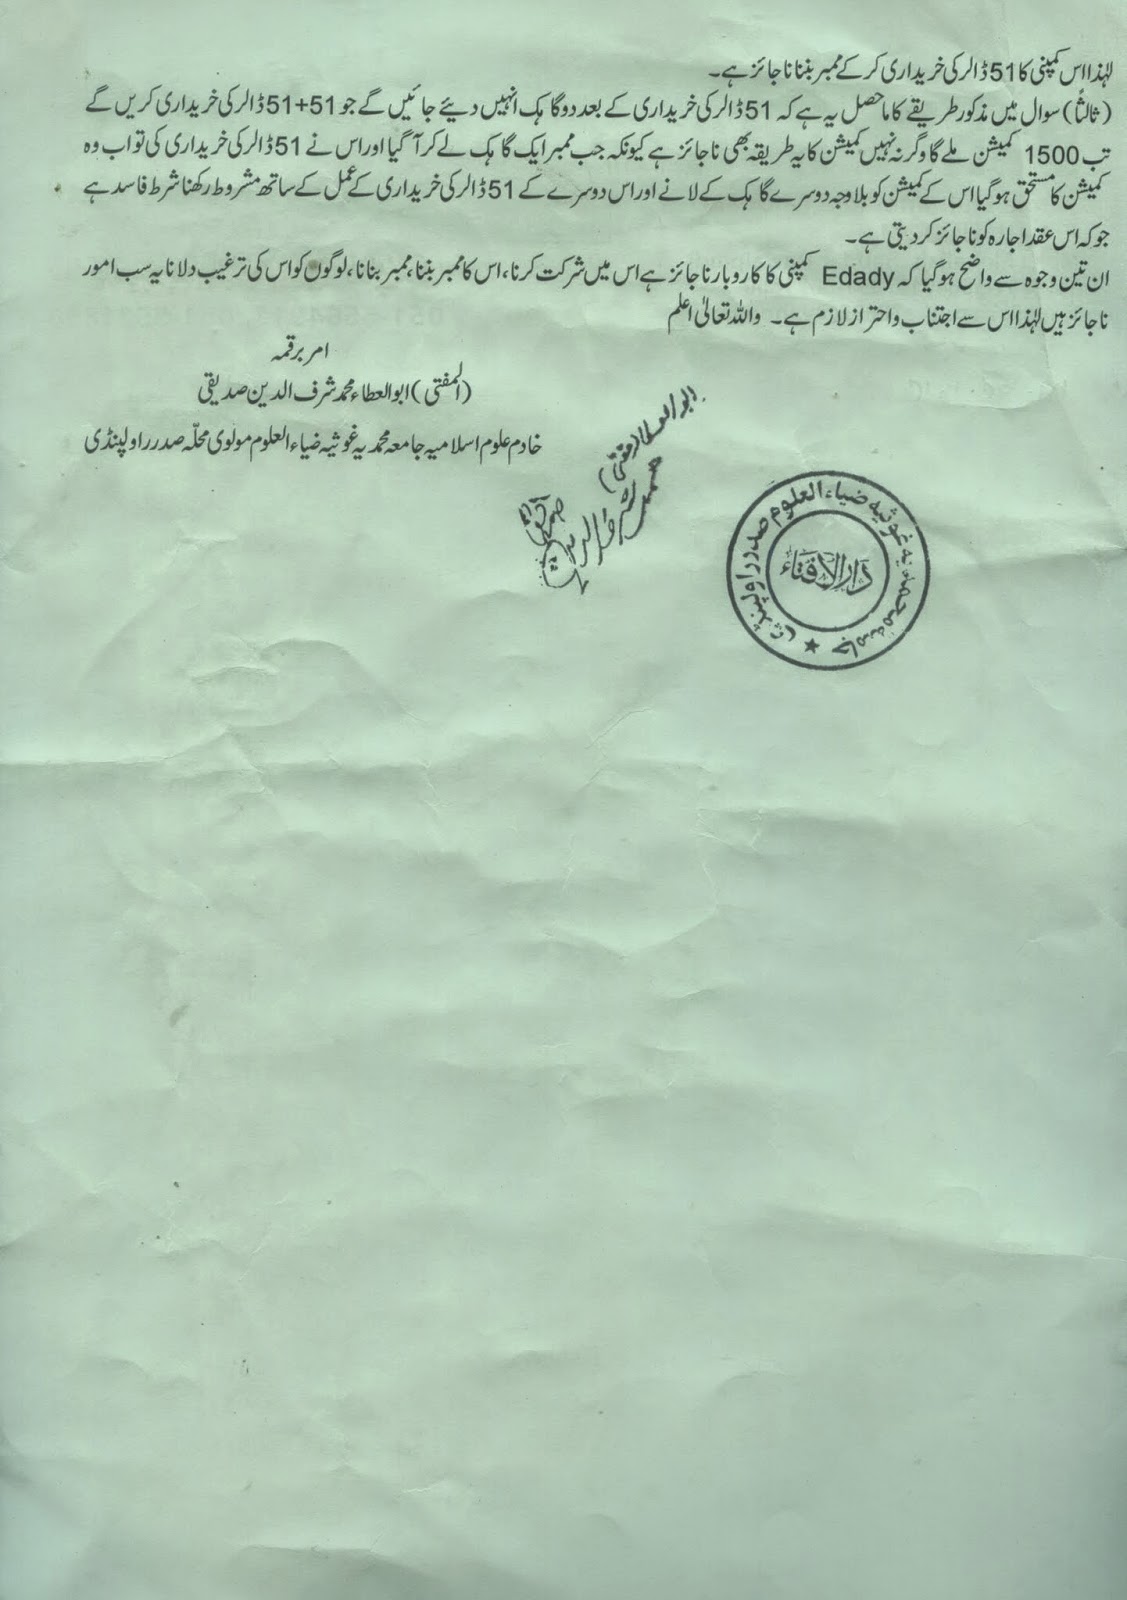 لہٰذا اس کمپنی کا 51 ڈالر کی خریداری کر کے ممبر بننا ناجائز ہے۔
(ثالثاً) سوال میں مذکور طریقے کا ماحصل یہ ہے کہ 51 ڈالر کی خریداری کے بعد دو گاہک انہیں دیئے جائیں گے جو 51+51 ڈالر کی خریداری کریں گے
تب 1500 کمیشن ملے گا وگرنہ نہیں کمیشن کا یہ طریقہ بھی ناجائز ہے کیونکہ جب ممبر ایک گاہک لے کر آ گیا اور اس نے 51 ڈالر کی خریداری کی تو اب وہ
کمیشن کا مستحق ہو گیا اس کے کمیشن کو بلاوجہ دوسرے گاہک کے لانے اور اس دوسرے کے 51 ڈالر کی خریداری کے عمل کے ساتھ مشروط رکھنا شرط فاسد ہے
جو کہ اس عقد اجارہ کو ناجائز کر دیتی ہے۔
ان تین وجوہ سے واضح ہو گیا کہ Edady کمپنی کا کاروبار ناجائز ہے اس میں شرکت کرنا، اس کا ممبر بننا، ممبر بنانا، لوگوں کو اس کی ترغیب دلانا یہ سب امور
ناجائز ہیں لہٰذا اس سے اجتناب و احتراز لازم ہے۔ واللہ تعالیٰ اعلم
امر برقمہ
(المفتی) ابوالعطاء محمد شرف الدین صدیقی
خادم علوم اسلامیہ جامعہ محمدیہ غوثیہ ضیاء العلوم مولوی محلّہ صدر راولپنڈی
جامعہ محمدیہ غوثیہ ضیاء العلوم صدر راولپنڈی
دارالافتاء